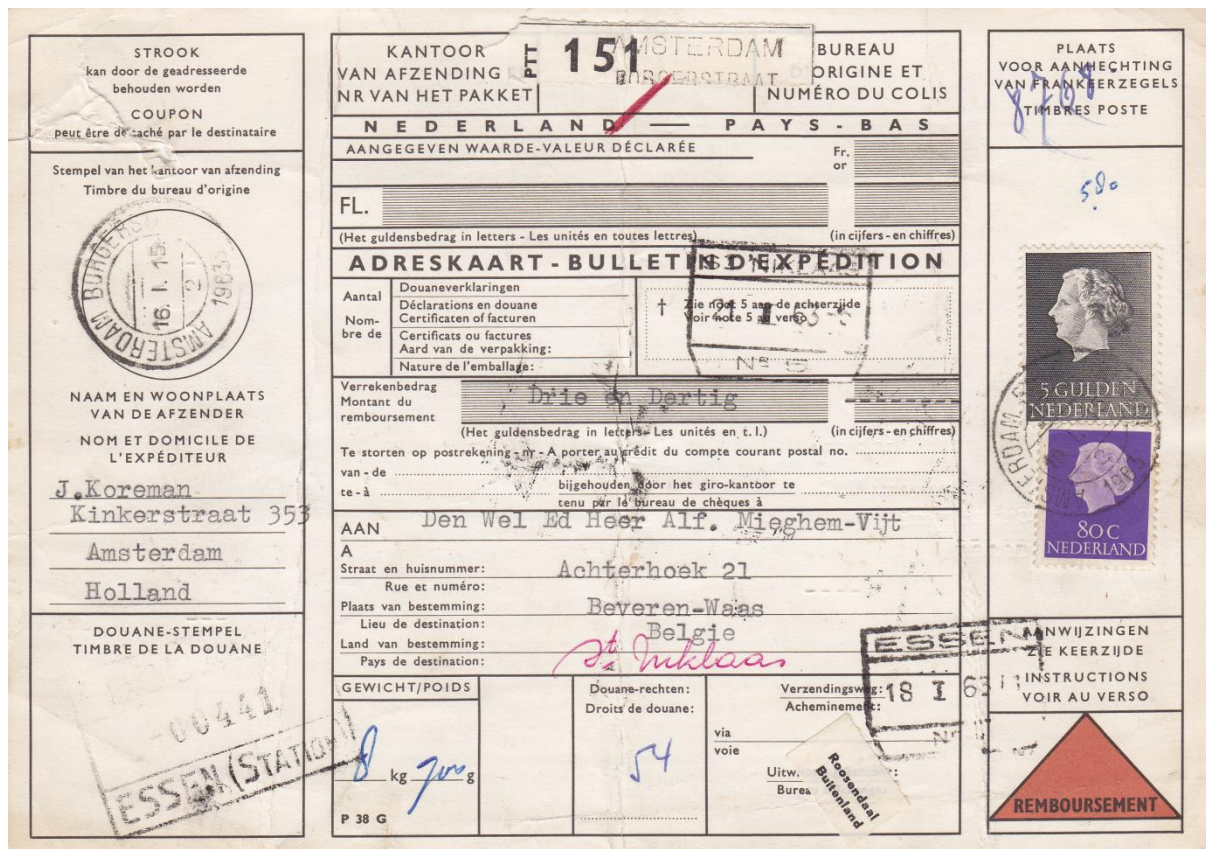 STROOK
kan door de geadresseerde
behouden worden
COUPON
peut être détaché par le destinataire
Stempel van het kantoor van afzending
Timbre du bureau d'origine
AMSTERDAM
16. I. 15
1963
NAAM EN WOONPLAATS
VAN DE AFZENDER
NOM ET DOMICILE DE
L'EXPÉDITEUR
J.Koreman
Kinkerstraat 353
Amsterdam
Holland
DOUANE-STEMPEL
TIMBRE DE LA DOUANE
-00441
ESSEN (STATION)
KANTOOR
VAN AFZENDING
NR VAN HET PAKKET
PTT
151
AMSTERDAM
BORGERSTRAAT
BUREAU
ORIGINE ET
NUMÉRO DU COLIS
NEDERLAND — PAYS-BAS
AANGEGEVEN WAARDE-VALEUR DÉCLARÉE
Fr.
or
FL.
(Het guldensbedrag in letters - Les unités en toutes lettres)
(in cijfers - en chiffres)
ADRESKAART - BULLETIN D'EXPÉDITION
Aantal
Nom-
bre de
Douaneverklaringen
Déclarations en douane
Certificaten of facturen
Certificats ou factures
Aard van de verpakking:
Nature de l'emballage:
† Zie noot 5 aan de achterzijde
Voir note 5 au verso
ST NIKLAAS
No 5
Verrekenbedrag
Montant du
remboursement
Drie en Dertig
(Het guldensbedrag in letters - Les unités en t. l.)
(in cijfers - en chiffres)
Te storten op postrekening - nr - A porter au crédit du compte courant postal no.
van - de
te - à
bijgehouden door het giro-kantoor te
tenu par le bureau de chèques à
AAN
A
Den Wel Ed Heer Alf. Mieghem-Vijt
Straat en huisnummer:
Rue et numéro:
Achterhoek 21
Plaats van bestemming:
Lieu de destination:
Beveren-Waas
Land van bestemming:
Pays de destination:
Belgie
St. Niklaas
GEWICHT/POIDS
8 kg 700 g
P 38 G
Douane-rechten:
Droits de douane:
54
Verzendingsweg:
Acheminement:
via
voie
Uitw.
Burea
Roosendaal
Buitenland
ESSEN
18 I 63
PLAATS
VOOR AANHECHTING
VAN FRANKEERZEGELS
TIMBRES POSTE
8768
580
5 GULDEN
NEDERLAND
80 C
NEDERLAND
1963
AANWIJZINGEN
ZIE KEERZIJDE
INSTRUCTIONS
VOIR AU VERSO
REMBOURSEMENT